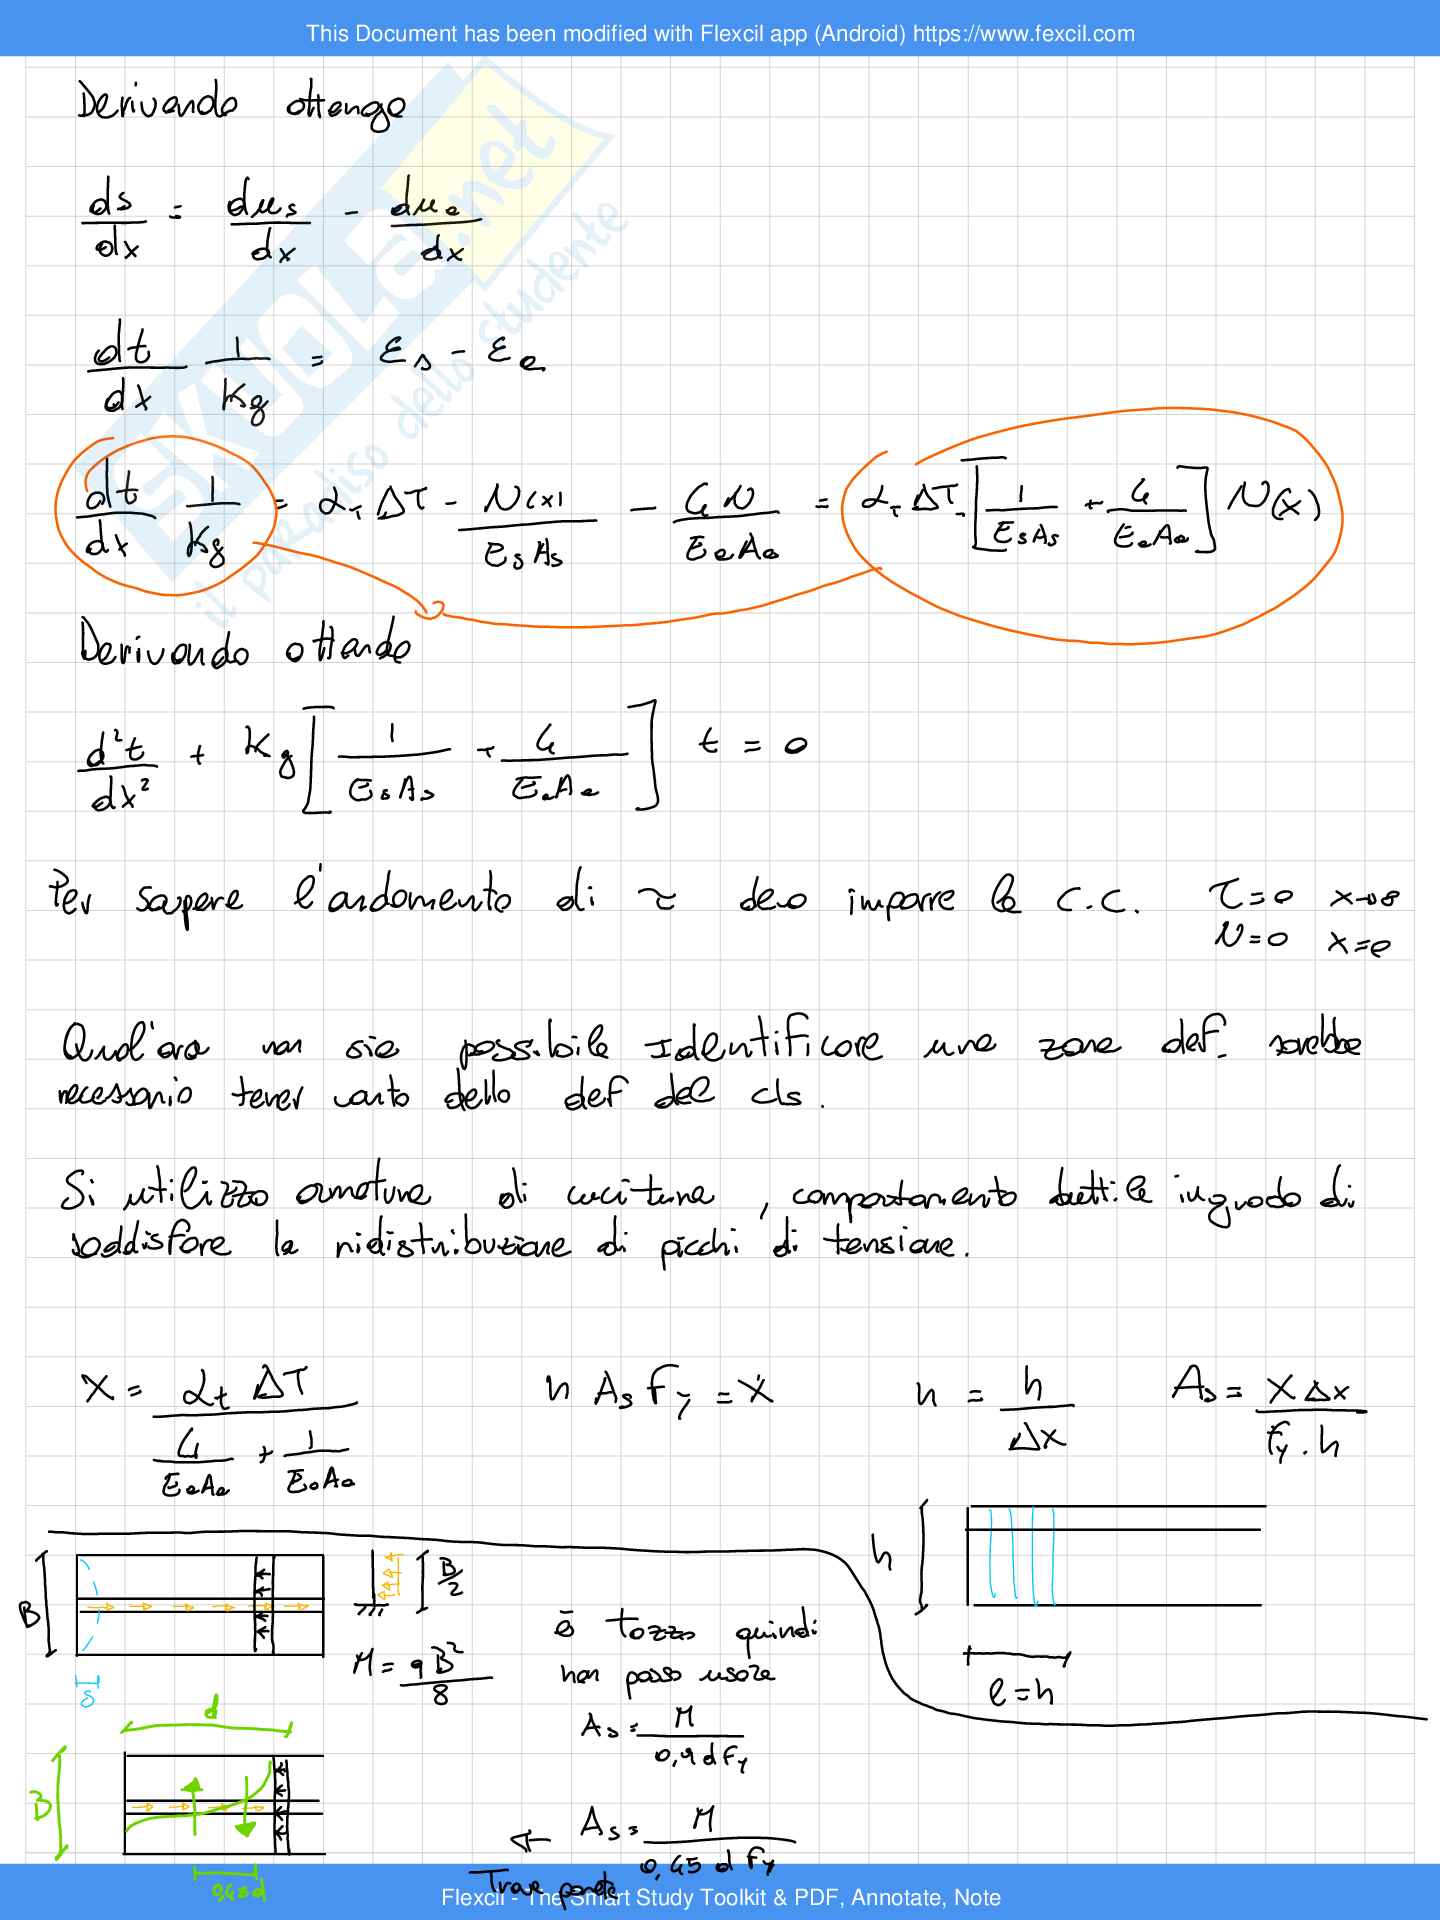 This Document has been modified with Flexcil app (Android) https://www.fexcil.com
Derivando ottengo
ds/dx = dus/dx - duc/dx
dt/dx 1/Kg = εs - εc
dt/dx 1/Kg = αT ΔT - N(x)/EsAs - 4N/EcAc = αT ΔT - [1/EsAs + 4/EcAc] N(x)
Derivando ottendo
d²t/dx² + Kg [1/EsAs + 4/EcAc] t = 0
Per sapere l'andamento di τ devo imporre le C.C. τ=0 x→∞
N=0 x=0
Qual'ora non sia possibile identificare una zona def. sarebbe
necessario tener conto della def del cls.
Si utilizza armatura di cucitura, comportamento duttile in grado di
soddisfare la ridistribuzione di picchi di tensione.
X = αt ΔT / (4/EcAc + 1/EcAc) n As fy = X n = h/Δx As = X Δx / fy . h
h
l=h
B
δ
B/2
M = qB²/8
è tozza quindi
non posso usare
As = M / 0,9 d fy
d
B
0,45 d
← As = M / 0,45 d fy
Trave parete
Flexcil - The Smart Study Toolkit & PDF, Annotate, Note
SKUOLA.net
il paradiso dello studente